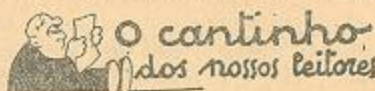 O cantinho
dos nossos leitores